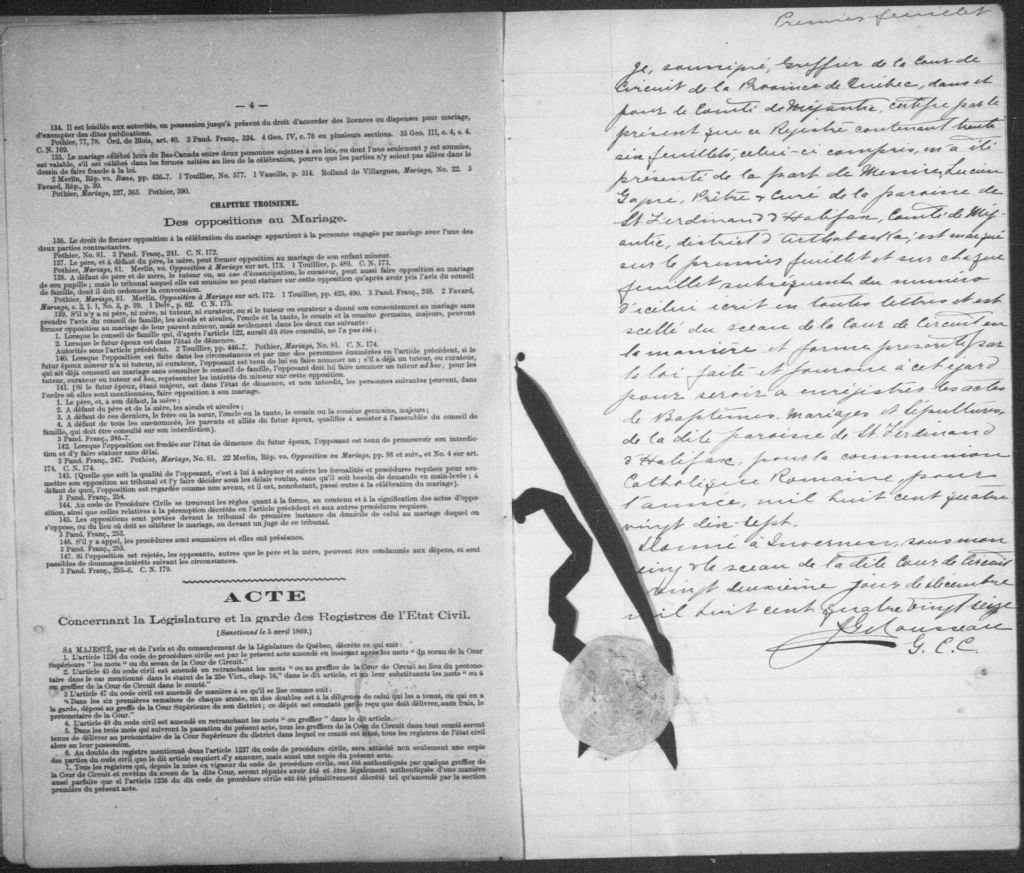 — 4 —
134. Il est loisible aux autorités, en possession jusqu'à présent du droit d'accorder des licences ou dispenses pour mariage,
d'exempter des dites publications.
Pothier, 77, 78. Ord. de Blois, art. 40. 2 Pand. Franç., 324. 4 Geo. IV, c. 76 en plusieurs sections. 35 Geo. III, c. 4, s. 4.
C. N. 169.
135. Le mariage célébré hors du Bas-Canada entre deux personnes sujettes à ses lois, ou dont l'une seulement y est soumise,
est valable, s'il est célébré dans les formes usitées au lieu de la célébration, pourvu que les parties n'y soient pas allées dans le
dessin de faire fraude à la loi.
2 Merlin, Rép. vo. Bans, pp. 436-7. 1 Touillier, No. 577. 1 Vazeille, p. 314. Rolland de Villargues, Mariage, No. 22. 5
Favard, Rép., p. 30.
Pothier, Mariage, 327, 363. Pothier, 390.
CHAPITRE TROISIEME.
Des oppositions au Mariage.
136. Le droit de former opposition à la célébration du mariage appartient à la personne engagée par mariage avec l'une des
deux parties contractantes.
Pothier, No. 81. 3 Pand. Franç., 241. C. N. 172.
137. Le père, et à défaut du père, la mère, peut former opposition au mariage de son enfant mineur.
Pothier, Mariage, 81. Merlin, vo. Opposition à Mariage sur art. 173. 1 Touillier, p. 489. C. N. 173.
138. A défaut de père et de mère, le tuteur ou, au cas d'émancipation, le curateur, peut aussi faire opposition au mariage
de son pupille; mais le tribunal auquel elle est soumise ne peut statuer sur cette opposition qu'après avoir pris l'avis du conseil
de famille, dont il doit ordonner la convocation.
Pothier, Mariage, 81. Merlin, Opposition à Mariage sur art. 172. 1 Touillier, pp. 425, 490. 3 Pand. Franç., 248. 2 Favard,
Mariage, s. 2, § 1, No. 3, p. 59. 1 Delv., p. 62. C. N. 175.
139. S'il n'y a ni père, ni mère, ni tuteur, ni curateur, ou si le tuteur ou curateur a donné son consentement au mariage sans
prendre l'avis du conseil de famille, les aïeuls et aïeules, l'oncle et la tante, le cousin et la cousine germains, majeurs, peuvent
former opposition au mariage de leur parent mineur, mais seulement dans les deux cas suivants:
1. Lorsque le conseil de famille qui, d'après l'article 122, aurait dû être consulté, ne l'a pas été;
2. Lorsque le futur époux est dans l'état de démence.
Autorités sous l'article précédent. 2 Touillier, pp. 446-7. Pothier, Mariage, No. 81. C. N. 174.
140. Lorsque l'opposition est faite dans les circonstances et par une des personnes énumérées en l'article précédent, si le
futur époux mineur n'a ni tuteur, ni curateur, l'opposant est tenu de lui en faire nommer un; s'il a déjà un tuteur, ou curateur,
qui ait déjà consenti au mariage sans consulter le conseil de famille, l'opposant doit lui faire nommer un tuteur ad hoc; pour les
tuteur, curateur ou tuteur ad hoc, représenter les intérêts du mineur sur cette opposition.
141. [Si le futur époux, étant majeur, est dans l'état de démence, et non interdit, les personnes suivantes peuvent, dans
l'ordre où elles sont mentionnées, faire opposition à son mariage.
1. Le père, et, à son défaut, la mère;
2. A défaut du père et de la mère, les aïeuls et aïeules;
3. A défaut de ces derniers, le frère ou la sœur, l'oncle ou la tante, le cousin ou la cousine germains, majeurs;
4. A défaut de tous les sus-nommés, les parents et alliés du futur époux, qualifiés à assister à l'assemblée du conseil de
famille, qui doit être consulté sur son interdiction].
3 Pand. Franç., 246-7.
142. Lorsque l'opposition est fondée sur l'état de démence du futur époux, l'opposant est tenu de promouvoir son interdic-
tion et d'y faire statuer sans délai.
3 Pand. Franç., 247. Pothier, Mariage, No. 81. 22 Merlin, Rép. vo. Opposition au Mariage, pp. 88 et suiv., et No. 4 sur art.
174. C. N. 174.
143. [Quelle que soit la qualité de l'opposant, c'est à lui à adopter et suivre les formalités et procédures requises pour sou-
mettre son opposition au tribunal et l'y faire décider sous les délais voulus, sans qu'il soit besoin de demande en main-levée; à
défaut de quoi, l'opposition est regardée comme non avenu, et il est, nonobstant, passé outre à la célébration du mariage].
3 Pand. Franç., 254.
144. Au code de Procédure Civile se trouvent les règles quant à la forme, au contenu et à la signification des actes d'oppo-
sition, ainsi que celles relatives à la péremption décrétée en l'article précédent et aux autres procédures requises.
145. Les oppositions sont portées devant le tribunal de première instance du domicile de celui au mariage duquel on
s'oppose, ou du lieu où doit se célébrer le mariage, ou devant un juge de ce tribunal.
3 Pand. Franç., 253.
146. S'il y a appel, les procédures sont sommaires et elles ont préséance.
3 Pand. Franç., 253.
147. Si l'opposition est rejetée, les opposants, autres que le père et la mère, peuvent être condamnés aux dépens, et sont
passibles de dommages-intérêts suivant les circonstances.
3 Pand. Franç., 255-6. C. N. 179.
ACTE
Concernant la Législature et la garde des Registres de l'Etat Civil.
[Sanctionné le 5 avril 1869.]
SA MAJESTÉ, par et de l'avis et du consentement de la Législature de Québec, décrète ce qui suit:
1. L'article 1236 du code de procédure civile est par le présent acte amendé en insérant après les mots "du sceau de la Cour
Supérieure" les mots "ou du sceau de la Cour de Circuit."
2. L'article 45 du code civil est amendé en retranchant les mots "ou au greffier de la Cour de Circuit au lieu du protono-
taire dans le cas mentionné dans le statut de la 25e Vict., chap. 16," dans le dit article, et en leur substituants les mots "ou à
un greffier de la Cour de Circuit dans le comté."
3 L'article 47 du code civil est amendé de manière à ce qu'il se lise comme suit:
"Dans les six premières semaines de chaque année, un des doubles est à la diligence de celui qui les a tenus, ou qui en a
la garde, déposé au greffe de la Cour Supérieure de son district; ce dépôt est constaté par le reçu que doit délivrer, sans frais, le
protonotaire de la Cour."
4. L'article 48 du code civil est amendé en retranchant les mots "ou greffier" dans le dit article.
5. Dans les trois mois qui suivront la passation du présent acte, tous les greffiers de la Cour de Circuit dans tout comté seront
tenus de délivrer au protonotaire de la Cour Supérieure du district dans lequel ce comté est situé, tous les registres de l'état civil
alors en leur possession.
6. Au double du registre mentionné dans l'article 1237 du code de procédure civile, sera attaché non seulement une copie
des parties du code civil que le dit article requiert d'y annexer, mais aussi une copie du présent acte.
7. Tous les registres qui, depuis la mise en vigueur du code de procédure civile, ont été authentiqués par quelque greffier de
la Cour de Circuit et revêtus du sceau de la dite Cour, seront réputés avoir été et être légalement authentiqués d'une manière
aussi parfaite que si l'article 1236 du dit code de procédure civile eût été primitivement décrété tel qu'amendé par la section
première du présent acte.
Premier feuillet
Je, soussigné, Greffier de la Cour de
Circuit de la Province de Québec, dans et
pour le Comté de Mégantic, certifie par le
présent que ce Registre contenant trente
six feuillets, celui-ci compris, m'a été
présenté de la part de Messire Lucien
Gagné, Prêtre & Curé de la paroisse de
St Ferdinand d'Halifax, Comté de Még-
antic, district d'Arthabaska; est marqué
sur le premier feuillet et sur chaque
feuillet subséquent du numéro
d'icelui écrit en toutes lettres et est
scellé du sceau de la Cour de Circuit en
la manière et forme prescrite par
la loi faite et pourvue à cet égard
pour servir à enregistrer les actes
de Baptêmes, Mariages et Sépultures
de la dite paroisse de St. Ferdinand
d'Halifax, pour la communion
Catholique Romaine, pour
l'année, mil huit cent quatre
vingt dix-sept.
Donné à Inverness, sous mon
seing & le sceau de la dite Cour de Circuit
vingt deuxième jour de décembre
mil huit cent quatre vingt seize
Rousseau
G. C. C.